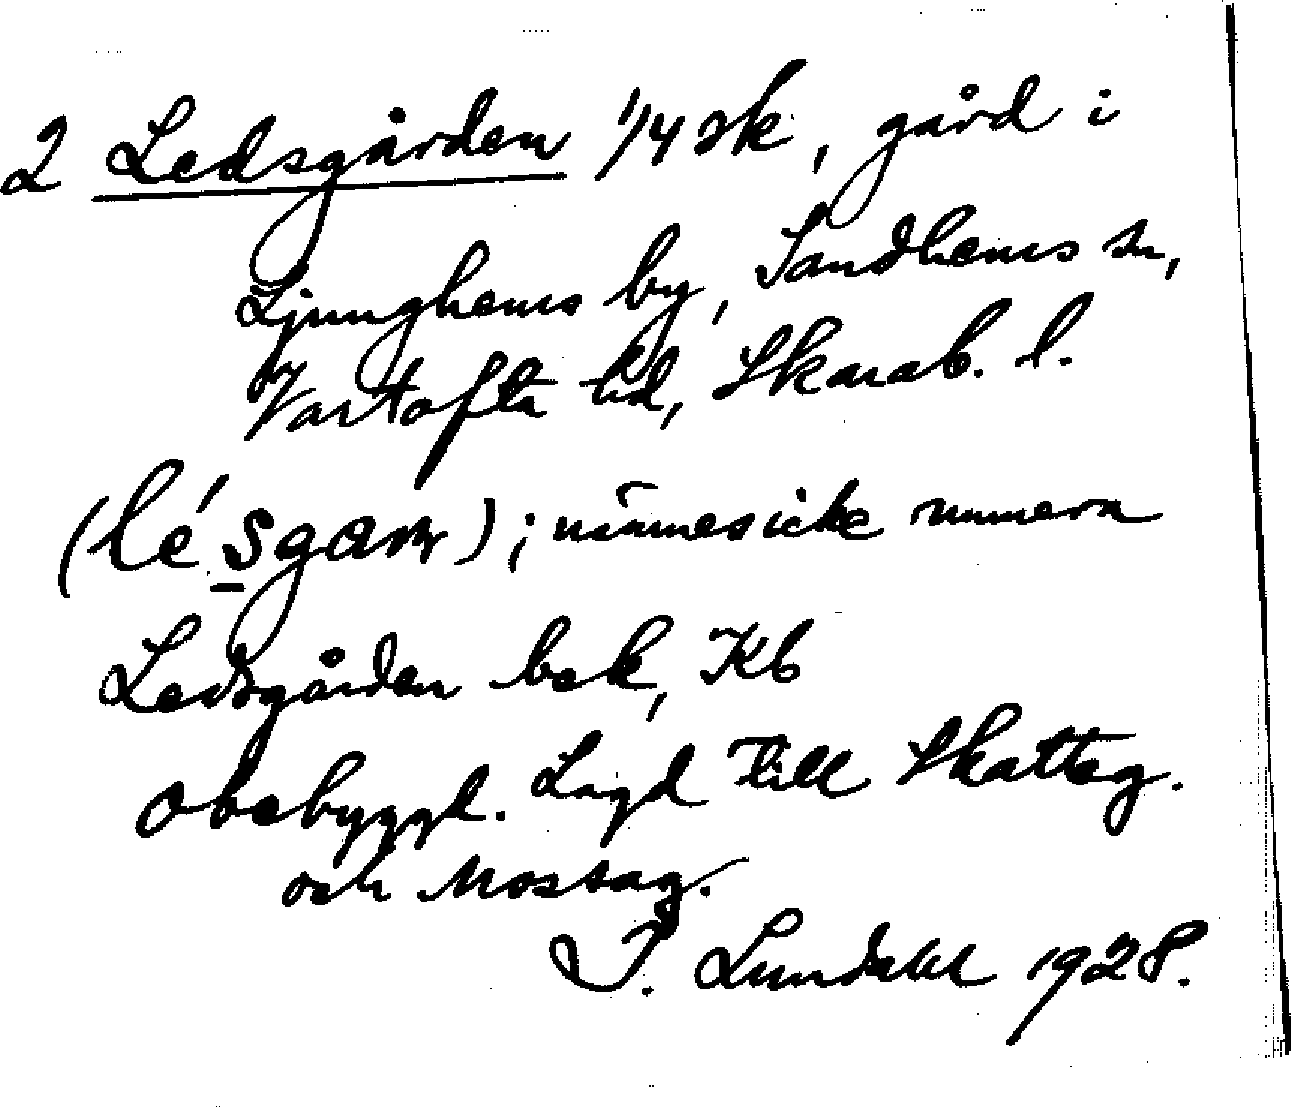 2 Ledsgården 1/4 sk, gård i
Ljunghems by, Sandhems sn,
Vartofta hd, Skarab. l.
(lé'sgaɳ); minnes icke numera
Ledsgården bek, Kb
Obebyggd. Lagd till Skatteg.
och Mossag.
I. Lundahl 1928.